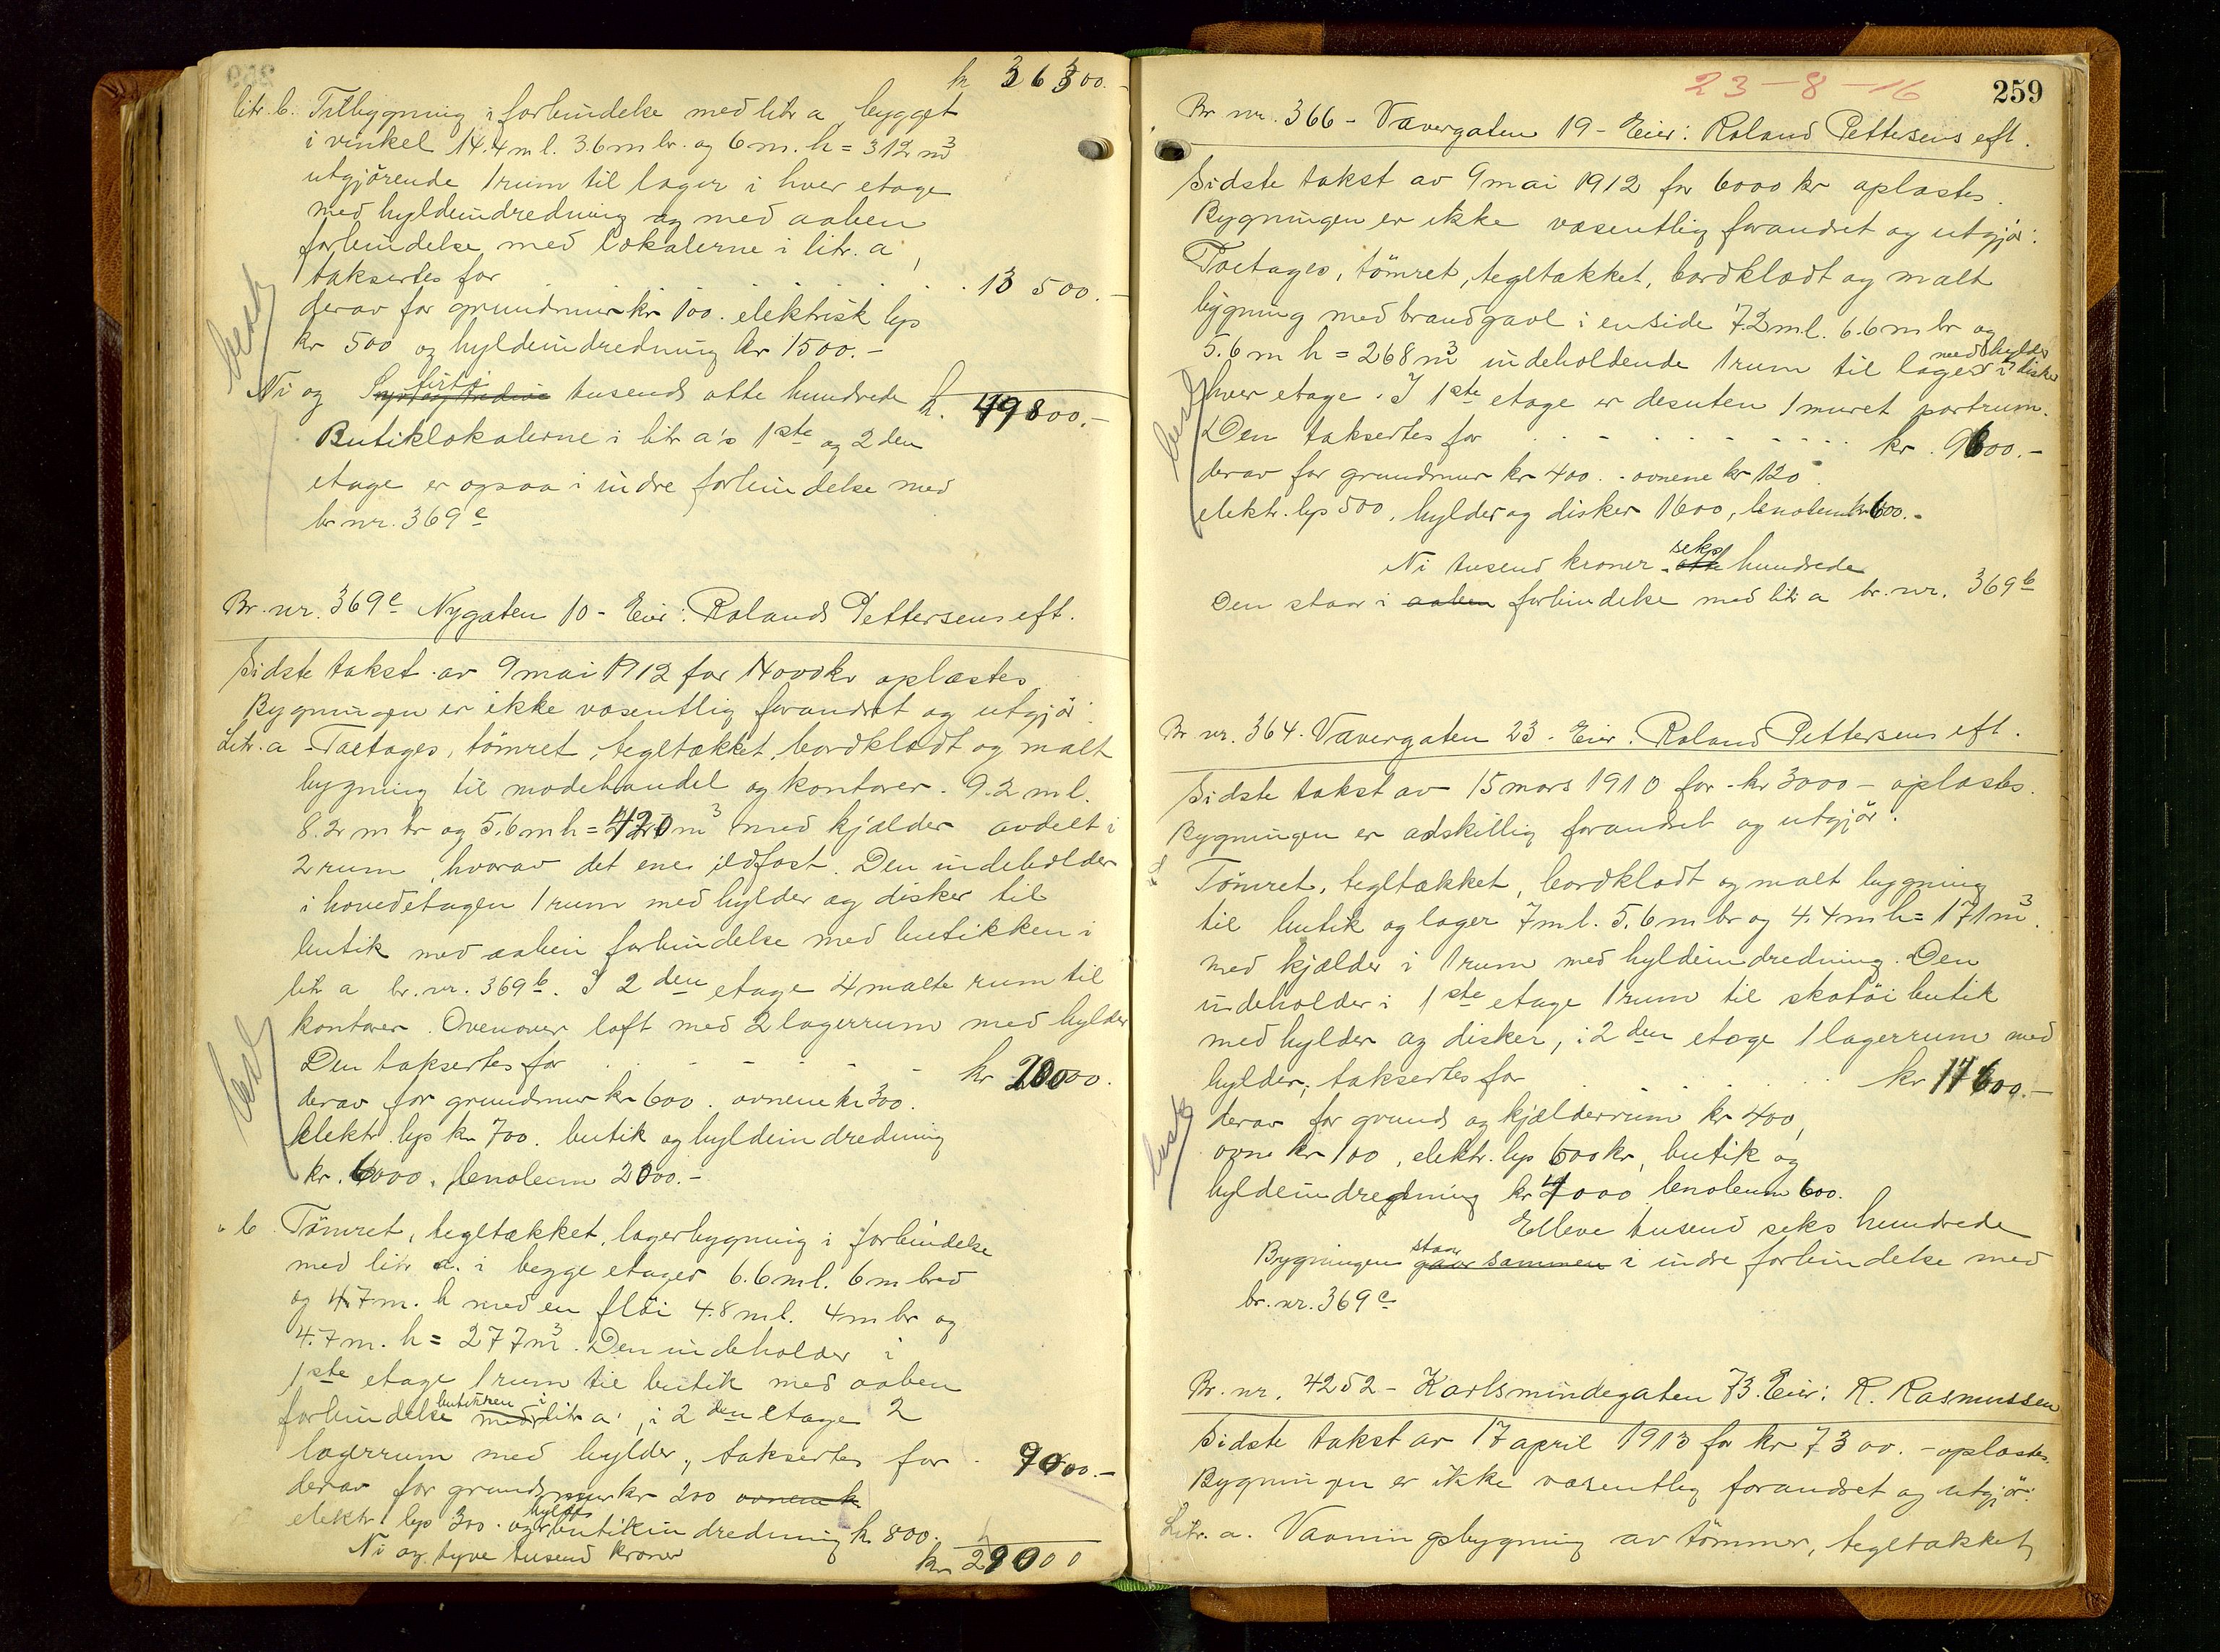 kr 36 300.-
litr. b. Tilbygning i forbindelse med litr a, bygget
i vinkel 14.4 m l. 3.6 m br. og 6 m. h = 312 m³
utgjörende 1 rum til lager i hver etage
med hyldeindredning og med aaben
forbindelse med lokalerne i litr. a,
taksertes for . . . . . . 13 500.-
derav for grundmur kr 100. elektrisk lys
kr 500 og hyldeindredning kr 1500.-
Ni og firti tusend otte hundrede kr. 49800.-
Butiklokalerne i litr a's 1ste og 2den
etage er ogsaa i indre forbindelse med
br. nr. 369 c
Br. nr. 369 c Nygaten 10 - Eier: Rolands Pettersens eft.
Sidste takst av 9 mai 1912 for 14000 kr oplæstes
Bygningen er ikke væsentlig forandret og utgjör:
Litr. a - Toetages, tömret, tegltækket, bordklædt og malt
bygning til modehandel og kontorer. 9.2 m l.
8.2 m br og 5.6 m h = 420 m³ med kjælder avdelt i
2 rum, hvorav det ene ildfast. Den indeholder
i hovedetagen 1 rum med hylder og disker til
butik med aaben forbindelse med butikken i
litr a br. nr. 369 b. I 2den etage 4 malte rum til
kontorer. Ovenover loft med 2 lagerrum med hylder
Den taksertes for . . . . . kr 20000.
derav for grundmur kr 600. ovnene kr 300.
elektr. lys kr 700. butik og hyldeindredning
kr. 6000, lenoleum 2000.-
" b. Tömret, tegltækket, lagerbygning i forbindelse
med litr a. i begge etager 6.6 m l. 6 m bred
og 4.7 m. h med en flöi 4.8 m l. 4 m br og
4.7 m. h = 277 m³. Den indeholder i
1ste etage 1 rum til butik med aaben
forbindelse med butikken i litr a, i 2den etage 2
lagerrum med hylder, taksertes for . 9000.-
derav for grundmur kr 200 ovnene kr
elektr. lys 300. og hylde butikindredning kr 800.
Ni og tyve tusend kroner kr 29000
23-8-16
259
Br nr. 366 - Vævergaten 19 - Eier: Roland Pettersens eft.
Sidste takst av 9 mai 1912 for 6000 kr oplæstes.
Bygningen er ikke væsentlig forandret og utgjör:
Toetages, tömret, tegltækket, bordklædt og malt
bygning med brandgavl i en side 7.2 m l. 6.6 m br og
5.6 m h = 268 m³ indeholdende 1 rum til lager med hylder i disker
hver etage. I 1ste etage er desuten 1 muret portrum.
Den taksertes for . . . . . . kr. 9600.-
derav for grundmur kr 400. - ovnene kr 120.
elektr. lys 500, hylder og disker 1600, lenoleum kr 600.-
Ni tusend kroner seks otte hundrede
Den staar i aaben forbindelse med litr a br. nr. 369 b
Br nr. 364. Vævergaten 23 - Eier. Roland Pettersens eft.
Sidste takst av 15 mars 1910 for - kr 3000 - oplæstes.
Bygningen er adskillig forandret og utgjör:
Tömret, tegltækket, bordklædt og malt bygning
til butik og lager 7 m l. 5.6 m br og 4.4 m h = 171 m³.
med kjælder i 1 rum med hyldeindredning. Den
indeholder i 1ste etage 1 rum til skotöi butik
med hylder og disker, i 2den etage 1 lagerrum med
hylder, taksertes for . . . . . kr 11600.-
derav for grund og kjælderrum kr 400,
ovne kr 100, elektr. lys 600 kr, butik og
hyldeindredning kr 4000 lenoleum 600.
Elleve tusend seks hundrede
Bygningen staar gaar sammen i indre forbindelse med
br. nr. 369 c
Br. nr. 4252 - Karlsmindegaten 73. Eier: R. Rasmussen
Sidste takst av 17 april 1913 for kr 7300. - oplæstes.
Bygningen er ikke væsentlig forandret og utgjör:
Litr. a. Vaaningsbygning av tömmer, tegltækket,